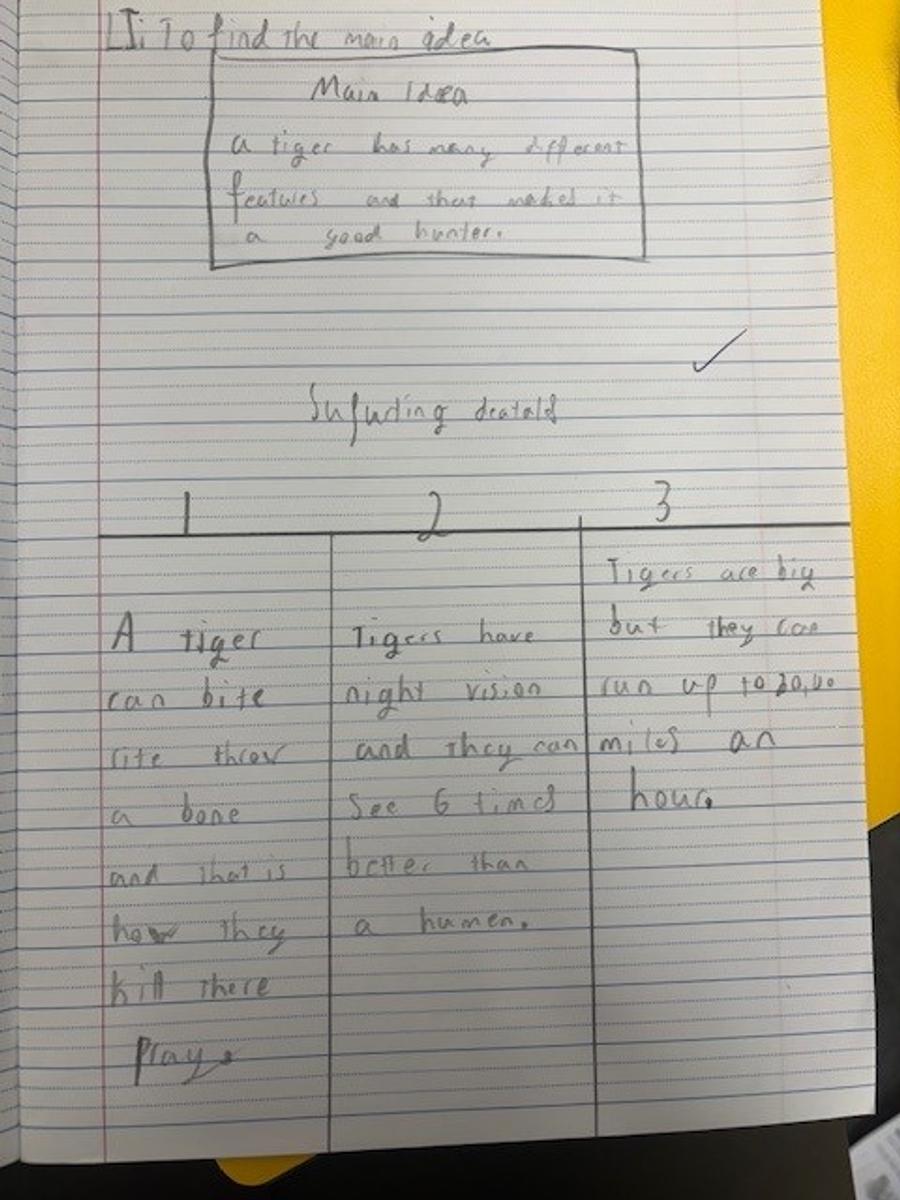 LI: To find the main idea
Main Idea
a tiger has many different
features and that maked it
a good hunter.
Supuding deatald
1 2 3
A tiger
can bite
rite throw
a bone
and that is
how they
kill there
Pray.
Tigers have
night vision
and they can
See 6 times
better than
a humen.
Tigers are big
but they can
run up to 30,40
miles an
hour.